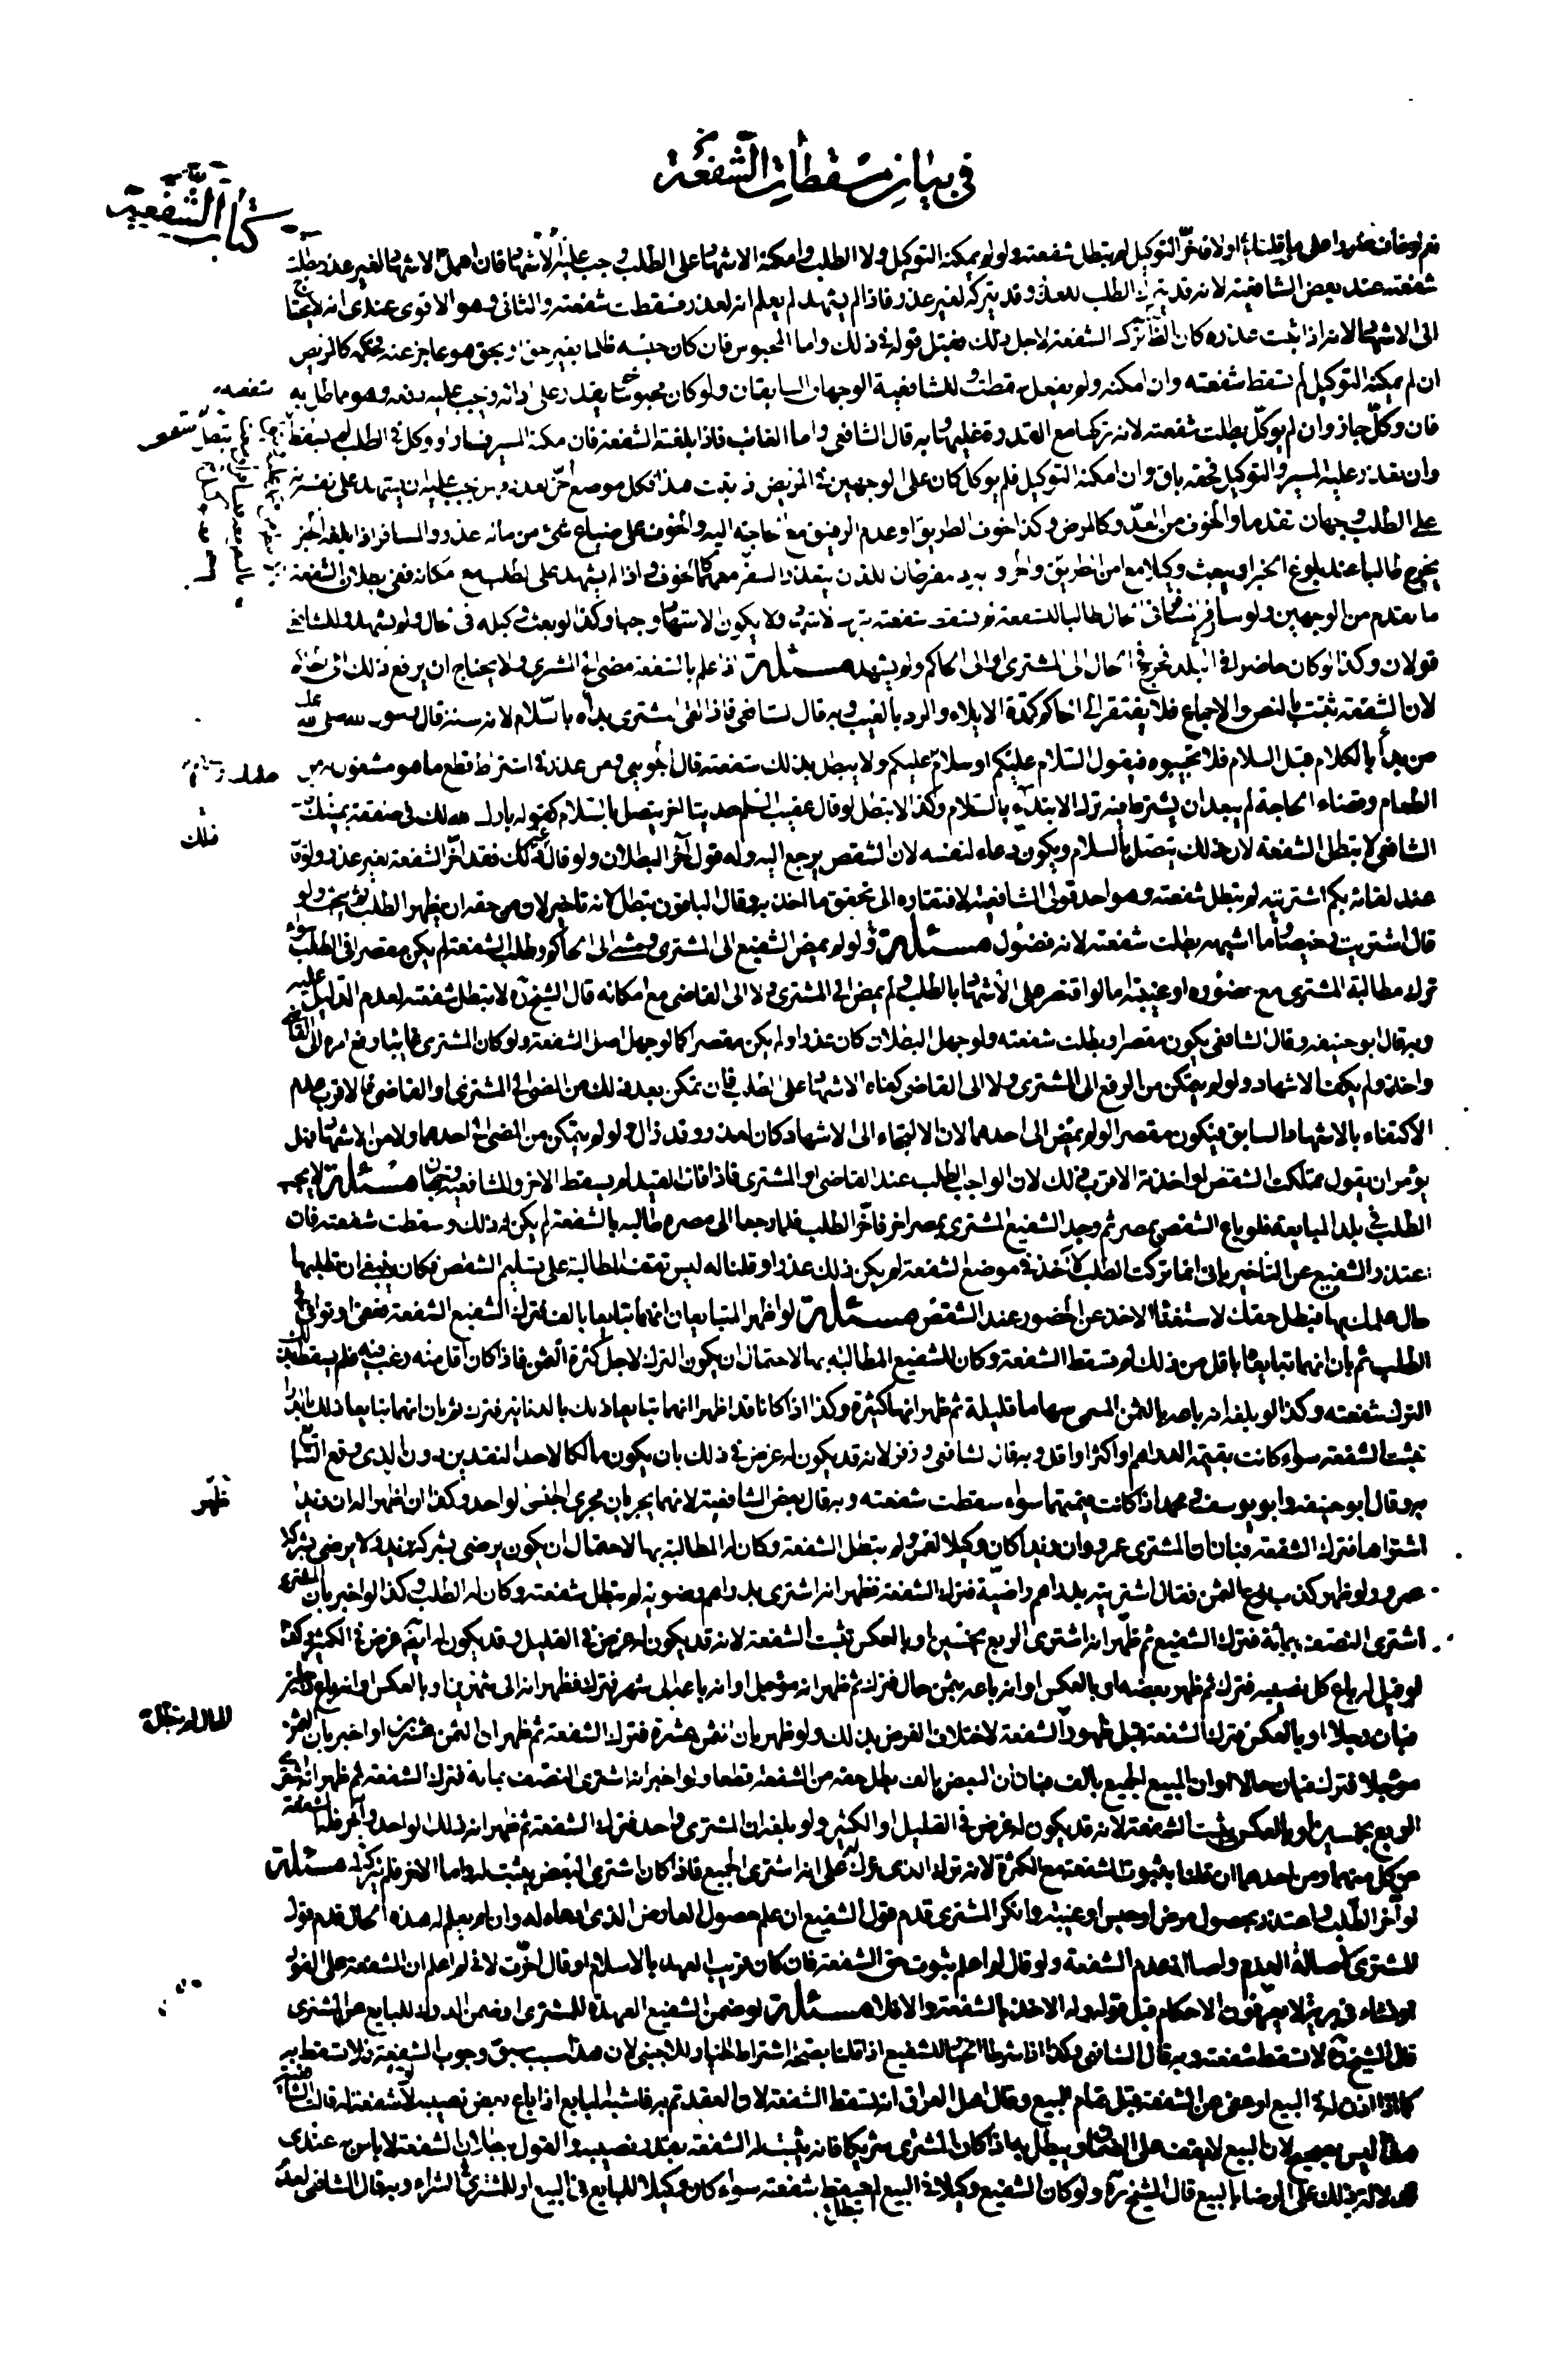 في بيان مسقطات الشفعة
كتاب الشفعة
شفعته عند بعض الشافعية لانه قد يترك الطلب للعذر وقد يتركه لغير عذر فاذا لم يشهد لم يعلم انه لعذر فسقطت شفعته والثاني وهو الاقوى عندي انه لا يحتاج
الى الاشهاد لانه اذا ثبت عذره كان الظاهر تركه الشفعة لاجل ذلك فقبل قوله في ذلك واما المحبوس فان كان حبسه ظلما بغير حق او بحق هو عاجز عنه فحكمه كالمريض
ان لم يمكنه التوكيل لم تسقط شفعته وان امكنه ولم يفعل سقطت وللشافعية الوجهان السابقان ولو كان محبوسا بحق يقدر على ادائه وجب عليه دفعه وهو مماطل به
فان وكل جاز وان لم يوكل بطلت شفعته لانه تركها مع القدرة عليها وبه قال الشافعي واما الغائب فاذا بلغته الشفعة فان امكنه المسير فسار او وكل في الطلب لم تسقط
وان تعذر عليه المسير والتوكيل فحقه باق وان امكنه التوكيل فلم يوكل كان على الوجهين في المريض اذا ثبت هذا فكل موضع اخر لعذر وجب عليه ان يشهد على نفسه
على الطلب وجهان تقدما والخوف من العدو كالمرض وكذا خوف الطريق او عدم الرفيق مع الحاجة اليه والخوف على ضياع شئ من ماله عذر والمسافر اذا بلغه الخبر
يخرج طالبا عند بلوغ الخبر او يبعث وكيلا مع امن الطريق
ما تقدم من الوجهين ولو سافر في الحال طالبا للشفعة لم تسقط شفعته بترك الاشهاد ولا يكون الاشهاد واجبا وكذا لو بعث وكيله في الحال ولم يشهد وللشافعي
قولان وكذا لو كان حاضرا في البلد فخرج في الحال الى المشتري او الى الحاكم ولم يشهد مسئلة اذا علم بالشفعة مضى الى المشتري ولا يحتاج ان يرفع ذلك الى الحاكم
لان الشفعة ثبتت بالنص والاجماع فلا يفتقر الى الحاكم كمدة الايلاء والرد بالعيب وبه قال الشافعي فاذا لقي المشتري بدأه بالسلام لانه سنة قال رسول الله صلى الله عليه
من بدأ بالكلام قبل السلام فلا تجيبوه فيقول السلام عليكم او سلام عليكم ولا يبطل بذلك شفعته قال الجويني ومن عذره في اشتراط قطع ما هو مشغول به من
الطعام وقضاء الحاجة لم يبعد ان يشترط فيه ترك الابتداء بالسلام وكذا لا تبطل لو قال عقيب السلام حديثا اخر يتصل بالسلام كقوله بارك الله لك في صفقة يمينك
الشافعي لا تبطل الشفعة لان ذلك يتصل بالسلام ويكون دعاء لنفسه لان الشقص يرجع اليه وله قول آخر البطلان ولو قال غير ذلك فقد اخر الشفعة بغير عذر ولو قال
عند لقائه بكم اشتريته لم تبطل شفعته وهو احد قولي الشافعية لافتقاره الى تحقق ما اخذ به وقال الباقون تبطل لانه تاخير لان من حقه ان يظهر الطلب ثم يبحث ولو
قال اشتريت رخيصا وما اشبهه بطلت شفعته لانه فضول مسئلة ولو لم يمض الشفيع الى المشتري ومشى الى الحاكم وطلب الشفعة لم يكن مقصرا في الطلب سواء
ترك مطالبة المشتري مع حضوره او غيبته اما لو اقتصر على الاشهاد بالطلب ولم يمض الى المشتري ولا الى القاضي مع امكانه قال الشيخ ره لا تبطل شفعته لعدم الدليل عليه
وبه قال ابو حنيفة وقال الشافعي يكون مقصرا وبطلت شفعته ولو جهل البطلان كان عذرا ولم يكن مقصرا كما لو جهل اصل الشفعة ولو كان المشتري غائبا رفع امره الى القاضي
واخذ ولم يكف الاشهاد ولو لم يتمكن من الرفع الى المشتري ولا الى القاضي كفاه الاشهاد على الطلب فان تمكن بعد ذلك من المضي الى المشتري او القاضي فالاقرب عدم
الاكتفاء بالاشهاد السابق فيكون مقصرا لو لم يمض الى احدهما لان الالتجاء الى الاشهاد كان لعذر وقد زال ولو لم يتمكن من المضي الى احدهما ولا من الاشهاد فهل
يؤمر ان يقول تملكت الشقص او اخذته الاقرب ذلك لان الواجب الطلب عند القاضي او المشتري فاذا فات القيد لم يسقط الاخر وللشافعية وجهان مسئلة لا يجب
الطلب في بلد المبايعة فلو باع الشقص بمصر ثم وجد الشفيع المشتري بمصر اخر فاخر الطلب فلما رجعا الى مصره طالبه بالشفعة لم يكن له ذلك وسقطت شفعته فان
اعتذر الشفيع عن التاخير باني انما تركت الطلب لآخذ في موضع الشفعة لم يكن ذلك عذرا وقلنا له ليس تقف المطالبة على تسليم الشقص فكان ينبغي ان تطلبها
حال علمك بها فبطل حقك لاستغناء الاخذ عن الحضور عند الشقص مسئلة لو اظهر المتبايعان انهما تبايعا بالف فترك الشفيع الشفعة فعفى او توانى في
الطلب ثم بان انهما تبايعا باقل من ذلك لم تسقط الشفعة وكان للشفيع المطالبة بها لاحتمال ان يكون الترك لاجل كثرة الثمن فاذا كان اقل منه رغب فيه فلم يسقط بذلك
الترك شفعته وكذا لو بلغه انه باعه بالثمن المسمى سهاما قليلة ثم ظهر انها كثيرة وكذا اذا كانا قد اظهرا انهما تبايعا ذلك بالدنانير فترك ثم بان انهما تبايعا ذلك بالدراهم
تثبت الشفعة سواء كانت بقيمة الدراهم او اكثر او اقل وبه قال الشافعي وزفر لانه قد يكون له غرض في ذلك بان يكون مالكا لاحد النقدين دون الذي وقع التبايع
به وقال ابو حنيفة وابو يوسف ومحمد اذا كانت قيمتهما سواء سقطت شفعته وبه قال بعض الشافعية لانهما يجريان مجرى الجنس الواحد وكذا ان اظهر له ان زيدا
اشتراها فترك الشفعة فبان ان المشتري عمرو وان زيدا كان وكيلا لعمرو لم تبطل الشفعة وكان له المطالبة بها لاحتمال ان يكون يرضى بشركة زيد ولا يرضى بشركة
عمرو ولو ظهر كذب نوع الثمن فقال اشتريته بدراهم راضية فترك الشفعة فظهر انه اشترى بدراهم رضوية لم تبطل شفعته وكان له الطلب وكذا لو اخبر بان المشتري
اشترى النصف بمائة فترك الشفيع ثم ظهر انه اشترى الربع بخمسين او بالعكس تثبت الشفعة لانه قد يكون له غرض في القليل وقد يكون له ايضا غرض في الكثير وكذا
لو قيل له باع كل نصيبه فترك ثم ظهر بعضه او بالعكس او انه باعه بثمن حال فترك ثم ظهر انه مؤجل او انه باعه الى شهر فترك فظهر انه الى شهرين او بالعكس او انه باع رجلين
فبان رجلا او بالعكس فترك الشفعة قبل ظهور الشفعة لاختلاف الغرض بذلك ولو ظهر بان الثمن عشرة فترك الشفعة ثم ظهر ان الثمن عشرون او اخبر بان الثمن
مؤجلا فترك فبان حالا او ان المبيع الجميع بالف فبان ان البعض بالف بطل حقه من الشفعة قطعا ولو اخبر انه اشترى النصف بمائة فترك الشفعة ثم ظهر انه اشترى
الربع بخمسين او بالعكس تثبت الشفعة لانه قد يكون له غرض في القليل او الكثير ولو بلغه ان المشتري واحد فترك الشفعة ثم ظهر انه ذلك الواحد وآخر فله الشفعة
من كل منهما ومن احدهما ان قلنا بثبوت الشفعة مع الكثرة لانه ترك الذي ترك على انه اشترى الجميع فاذا كان اشترى البعض يثبت له واما الاخر فلم يتركه له مسئلة
لو اخر الطلب واعتذر بحصول مرض او حبس او غيبة وانكر المشتري قدم قول الشفيع ان علم حصول العارض الذي ادعاه له وان لم يعلم له هذه الحال قدم قول
المشتري لاصالة العدم ولاصالة عدم الشفعة ولو قال لم اعلم ثبوت حق الشفعة فان كان قريب العهد بالاسلام او قال اخرت لاني لم اعلم ان الشفعة على الفور
او نشأ في برية لا يعرفون الاحكام قبل قوله وله الاخذ بالشفعة والا فلا مسئلة لو ضمن الشفيع العهدة للمشتري او ضمن الدرك للبايع عن المشتري
قال الشيخ ره لا تسقط شفعته وبه قال الشافعي وكذا اذا شرطا الخيار للشفيع اذا قلنا بصحة اشتراط الخيار للاجنبي لان هذا سبب سبق وجوب الشفعة فلا تسقط به
كما اذا اذن له في البيع او عفى عن الشفعة قبل تمام البيع وقال اهل العراق انه تسقط الشفعة لان العقد تم به فاشبه البايع اذا باع بعض نصيبه لا شفعة له قالت الشافعية
هذا ليس بصحيح لان البيع لا يقف على الضمان ويبطل به اذا كان المشتري شريكا فانه يثبت له الشفعة بقدر نصيبه والقول ببطلان الشفعة لا باس به عندي
لدلالة ذلك على الرضا بالبيع قال الشيخ ره ولو كان الشفيع وكيلا في البيع لم تسقط شفعته سواء كان وكيلا للبايع في البيع او للمشتري في الشراء وبه قال الشافعي لعدم
تبطل